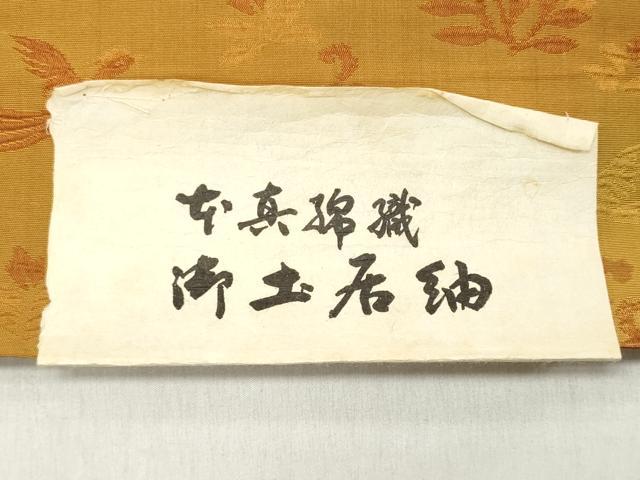 本真綿織
御土居紬